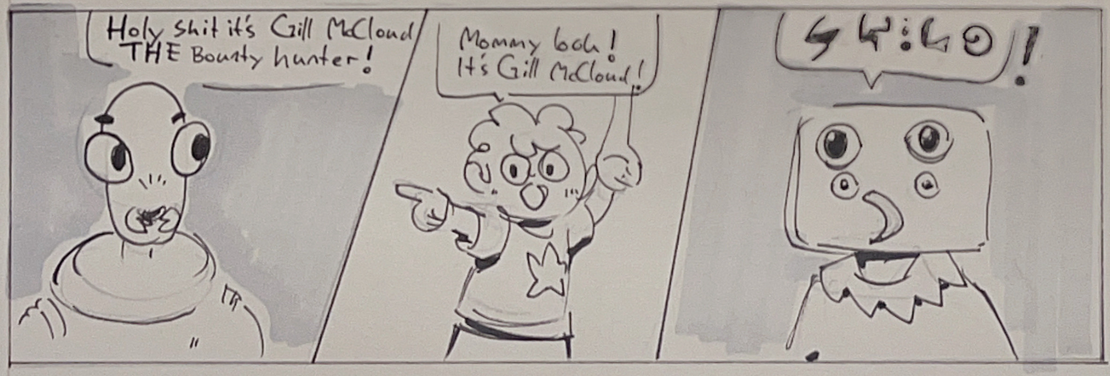 Holy shit it's Gill McCloud
THE Bounty hunter!
Mommy look!
It's Gill McCloud!